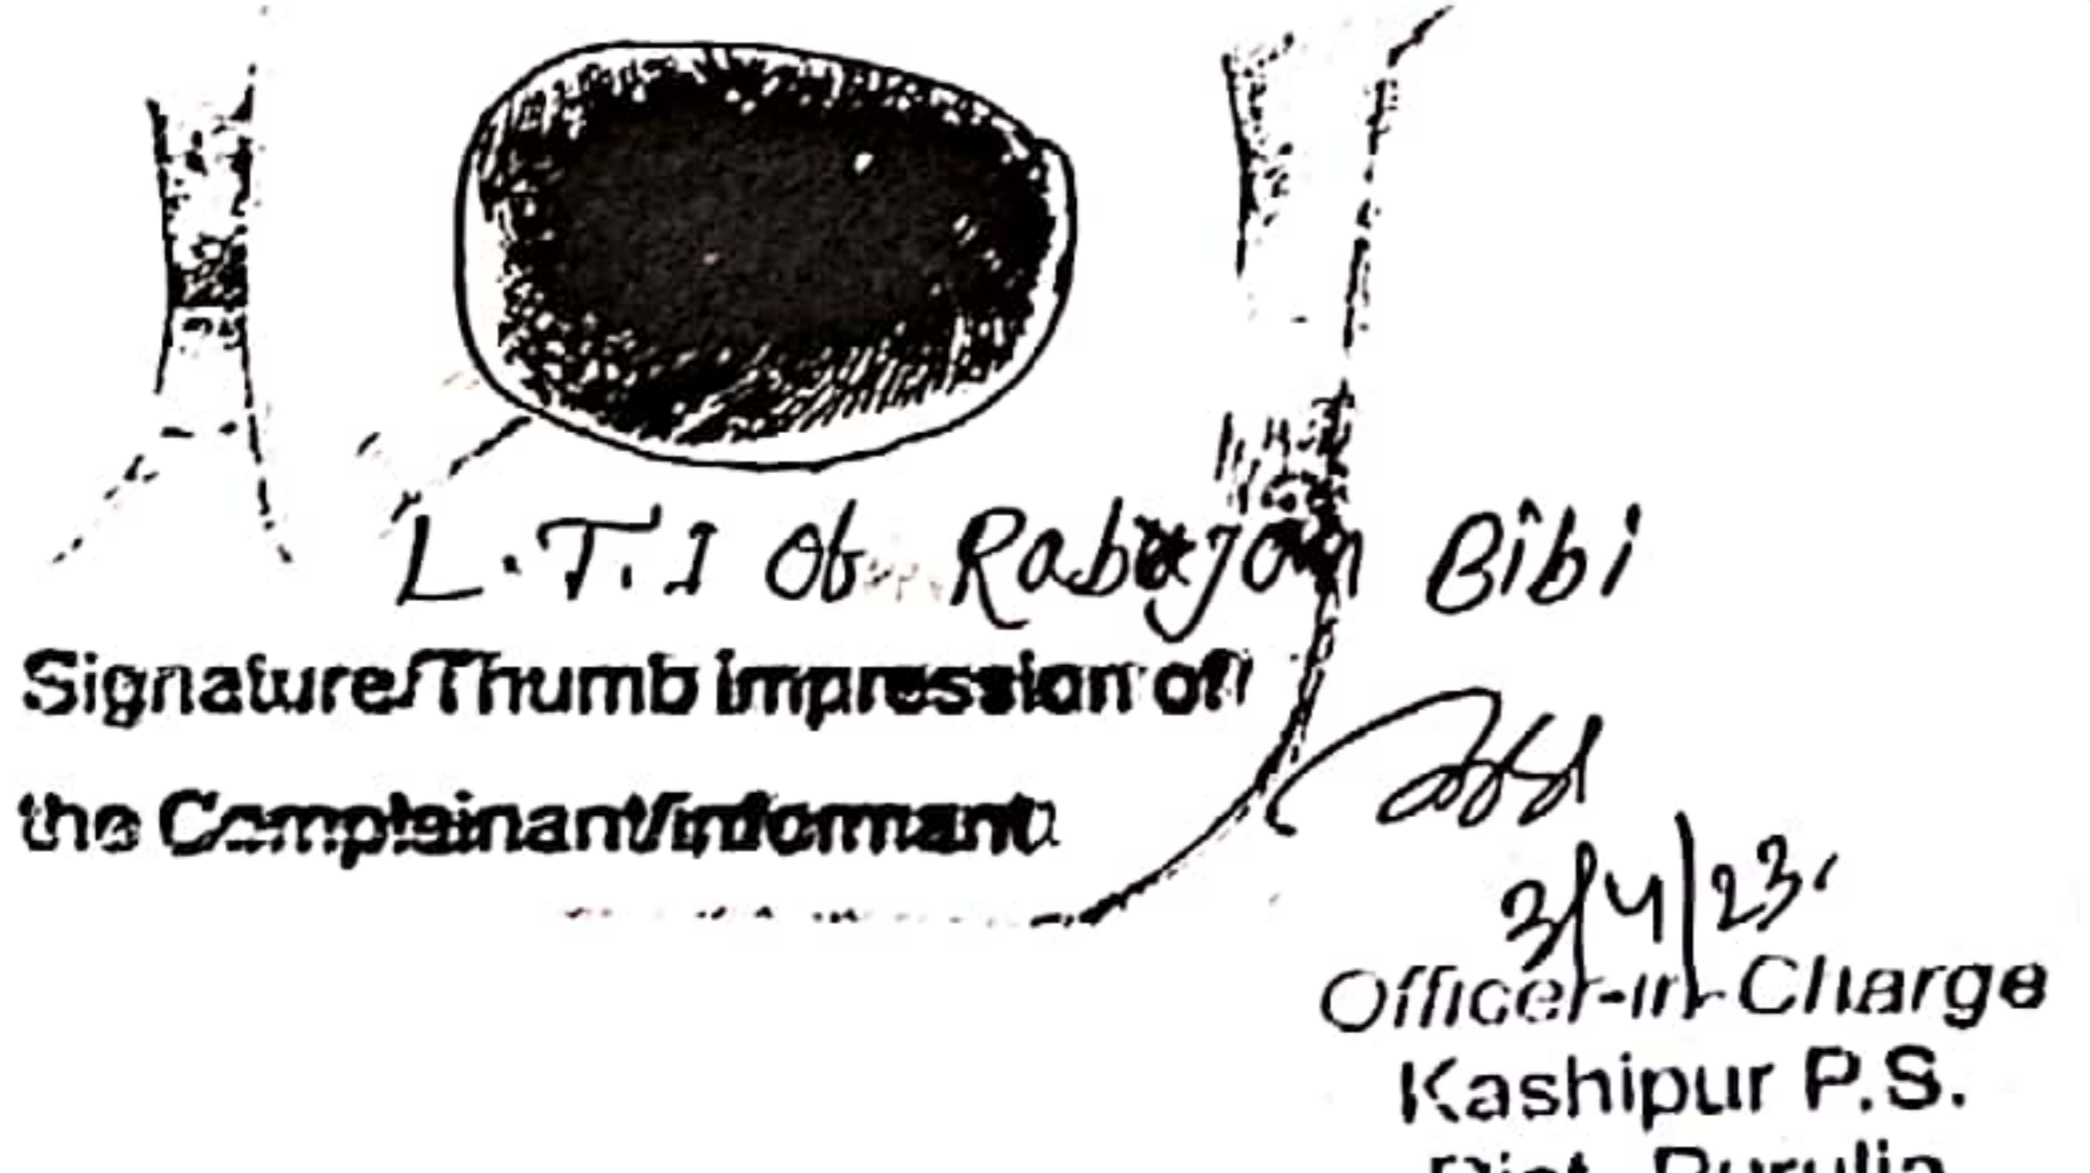 L.T.I of Rabujan Bibi
Signature/Thumb impression of
the Complainant/informant
3/4/23
Officer-in-Charge
Kashipur P.S.
Dist. Purulia